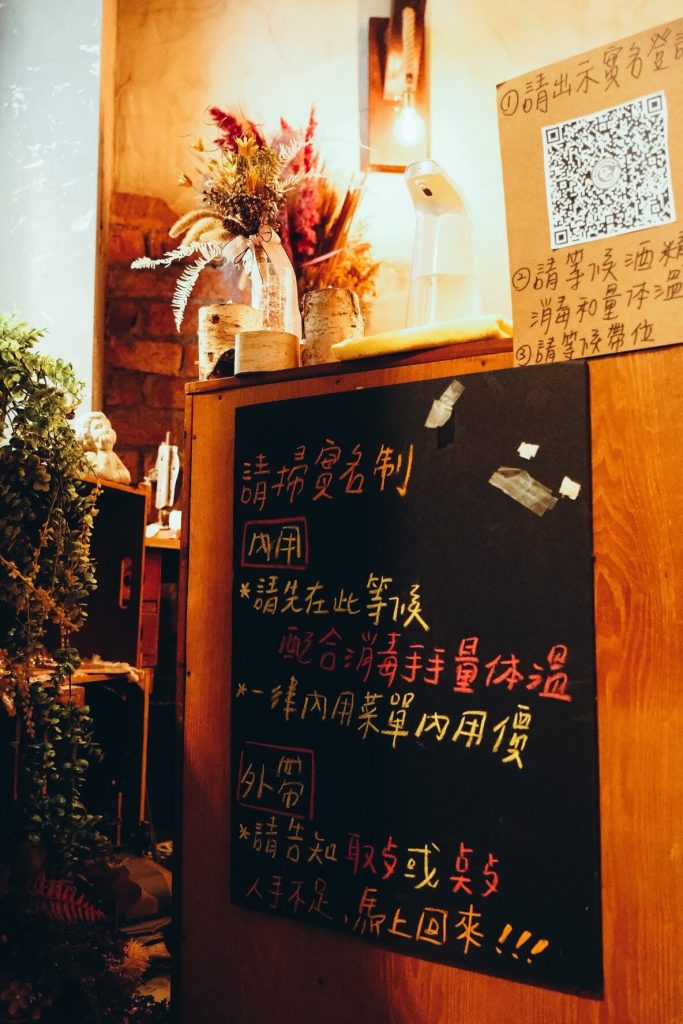 ①請出示實名登
②請等候酒精
消毒和量体温
③請等候帶位
請掃實名制
內用
*請先在此等候
配合消毒手手量体溫
*一律內用菜單內用價
外帶
*請告知 取号或桌号
人手不足、馬上回來!!!